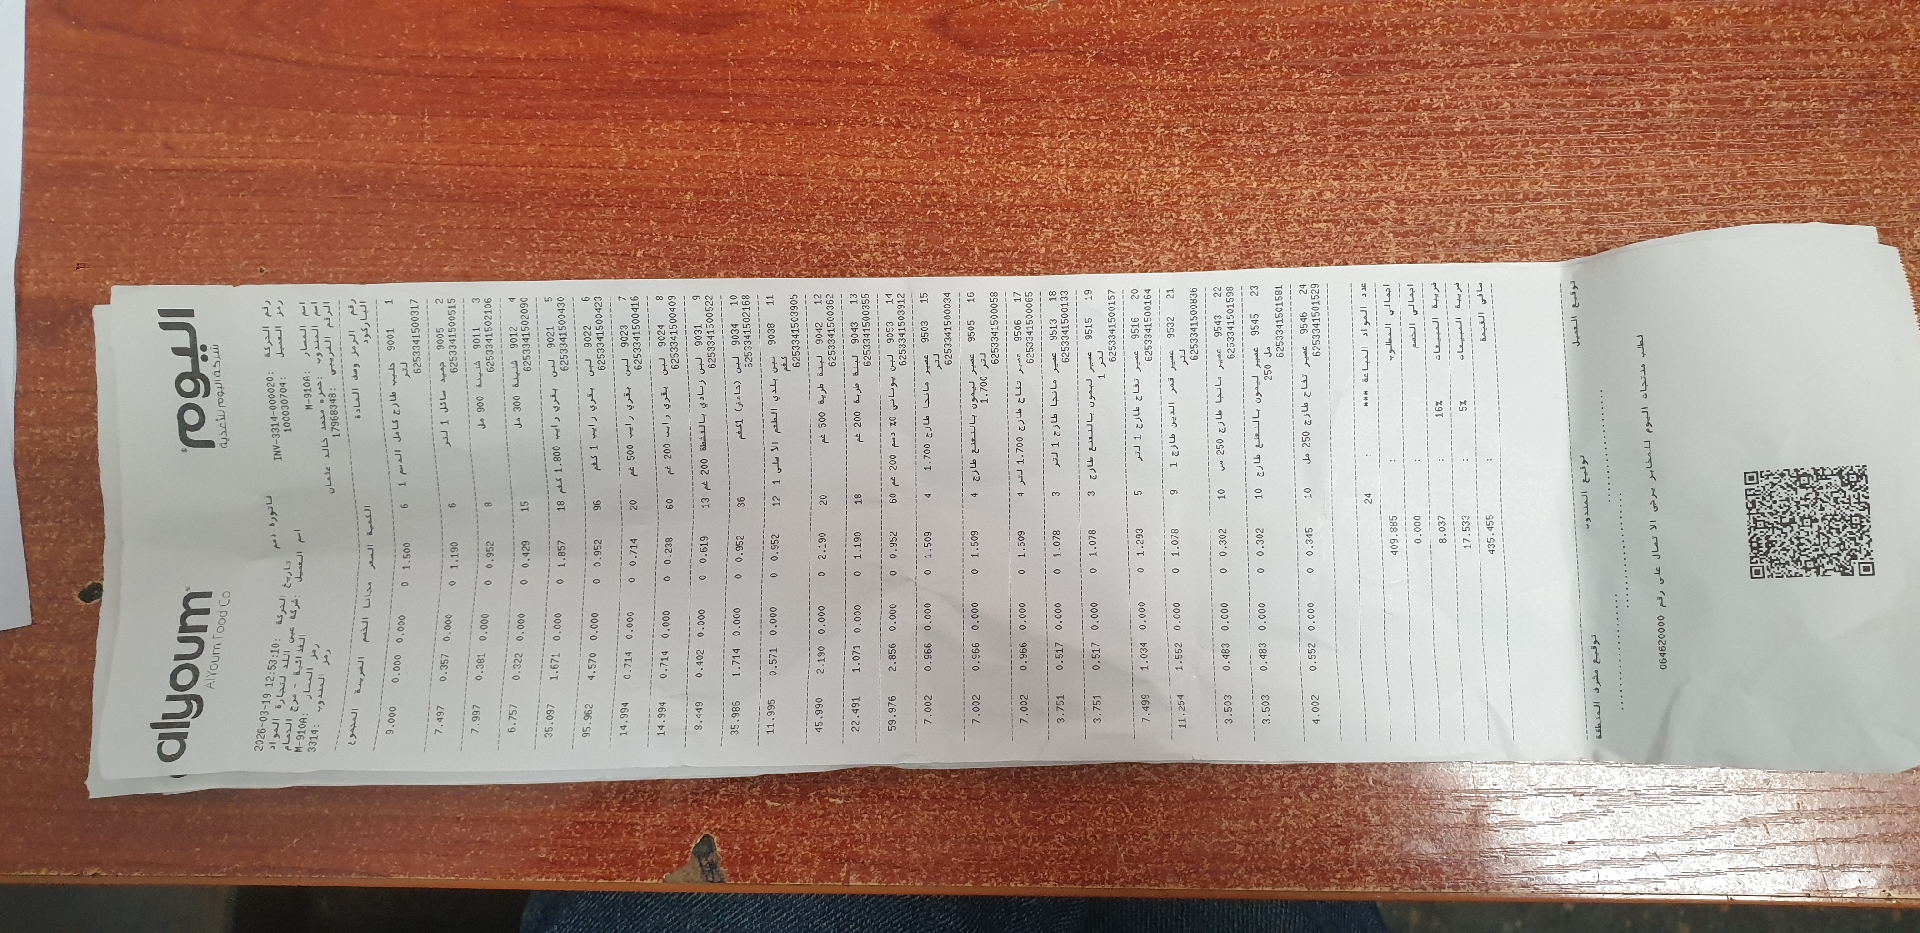 alyoum اليوم
AlYoum Food Co شركة اليوم للأغذية
رقم الحركة: INV-3314-000020 فاتورة ذمم تاريخ الحركة: 2026-03-19 12:53:10
رمز العميل: 100030704 اسم العميل: شركة عين البلد لتجارة المواد
الغذائية - فرع الدمام
اسم المسار: M-910A رمز المسار: M-910A
اسم المندوب: حمزه محمد خالد علمان رمز المندوب: 3314
الرقم الضريبي: 17968348
رقم الرمز وصف المادة الكمية السعر مجانا الخصم الضريبة المجموع
الباركود
1 9001 حليب طازج كامل الدسم 1 لتر 6 1.500 0 0.000 0.000 9.000
6253341500317
2 9005 جميد سائل 1 لتر 6 1.190 0 0.000 0.357 7.497
6253341500515
3 9011 شنينة 900 مل 8 0.952 0 0.000 0.381 7.997
6253341502106
4 9012 شنينة 300 مل 15 0.429 0 0.000 0.322 6.757
6253341502090
5 9021 لبن بقري رايب 1.800 كغم 18 1.857 0 0.000 1.671 35.097
6253341500430
6 9022 لبن بقري رايب 1 كغم 96 0.952 0 0.000 4.570 95.962
6253341500423
7 9023 لبن بقري رايب 500 غم 20 0.714 0 0.000 0.714 14.994
6253341500416
8 9024 لبن بقري رايب 200 غم 60 0.238 0 0.000 0.714 14.994
6253341500409
9 9031 لبن زبادي بالقشطة 200 غم 13 0.619 0 0.000 0.402 8.449
6253341500522
10 9034 لبن (حامز) 1كغم 36 0.952 0 0.000 1.714 35.985
6253341502168
11 9038 لبن بلدي الطعم الاصلي 1 كغم 12 0.952 0 0.000 0.571 11.995
6253341503905
12 9042 لبنة طرية 500 غم 20 2.190 0 0.000 2.190 45.990
6253341500362
13 9043 لبنة طرية 200 غم 18 1.190 0 0.000 1.071 22.491
6253341500355
14 9053 لبن يوناني 0% دسم 200 غم 60 0.952 0 0.000 2.856 59.976
6253341503912
15 9503 عصير مانجا طازج 1.700 لتر 4 1.509 0 0.000 0.966 7.002
6253341500034
16 9505 عصير ليمون بالنعنع طازج 1.700 لتر 4 1.509 0 0.000 0.966 7.002
6253341500058
17 9506 عصير تفاح طازج 1.700 لتر 4 1.509 0 0.000 0.966 7.002
6253341500065
18 9513 عصير مانجا طازج 1 لتر 3 1.078 0 0.000 0.517 3.751
6253341500133
19 9515 عصير ليمون بالنعنع طازج 1 لتر 3 1.078 0 0.000 0.517 3.751
6253341500157
20 9516 عصير تفاح طازج 1 لتر 5 1.293 0 0.000 1.034 7.499
6253341500164
21 9532 عصير قمر الدين طازج 1 لتر 9 1.078 0 0.000 1.552 11.254
6253341500836
22 9543 عصير مانجا طازج 250 مل 10 0.302 0 0.000 0.483 3.503
6253341501598
23 9545 عصير ليمون بالنعنع طازج 250 مل 10 0.302 0 0.000 0.483 3.503
6253341501581
24 9546 عصير تفاح طازج 250 مل 10 0.345 0 0.000 0.552 4.002
6253341501529
عدد المواد المباعة *** : 24
اجمالي المطلوب : 409.885
اجمالي الخصم : 0.000
ضريبة المبيعات 16% : 8.037
ضريبة المبيعات 5% : 17.533
صافي القيمة : 435.455
توقيع العميل توقيع المندوب توقيع مشرف المنطقة
لطلب منتجات اليوم للمخابز يرجى الاتصال على رقم 064620000